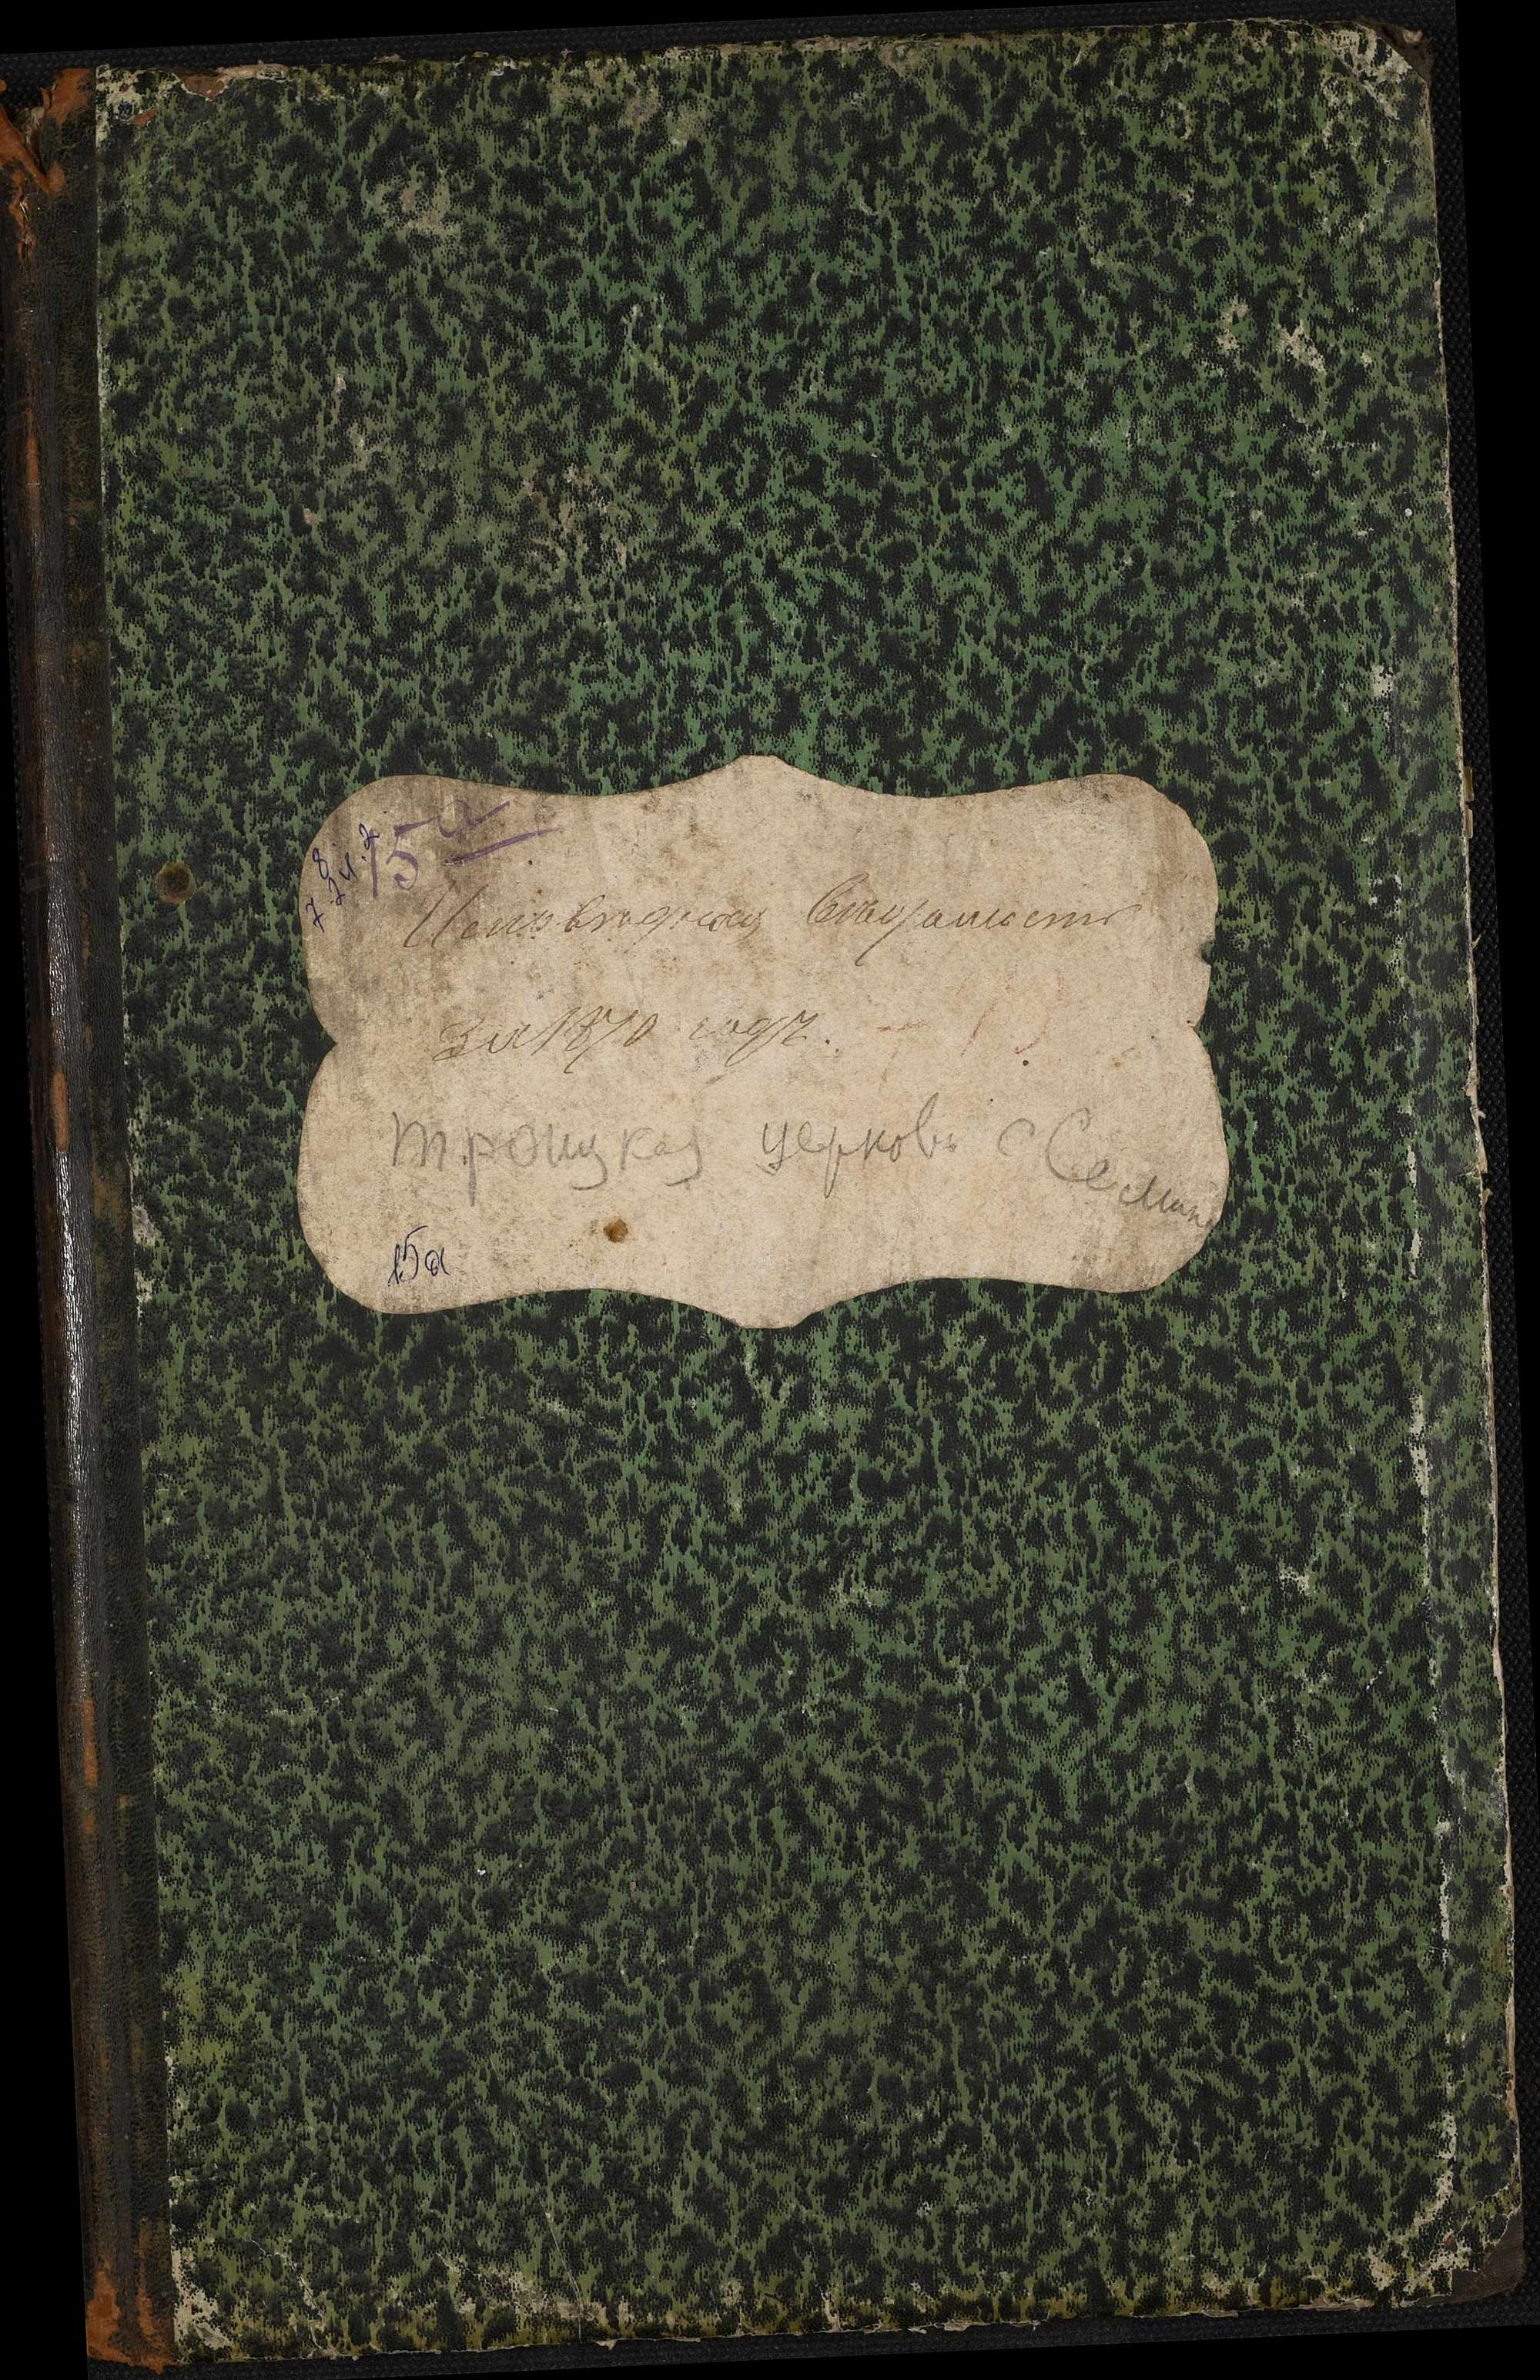 15а
Исповѣдная Вѣдомость
за 1870 годъ.
Троицкая церковь с Семин
15а